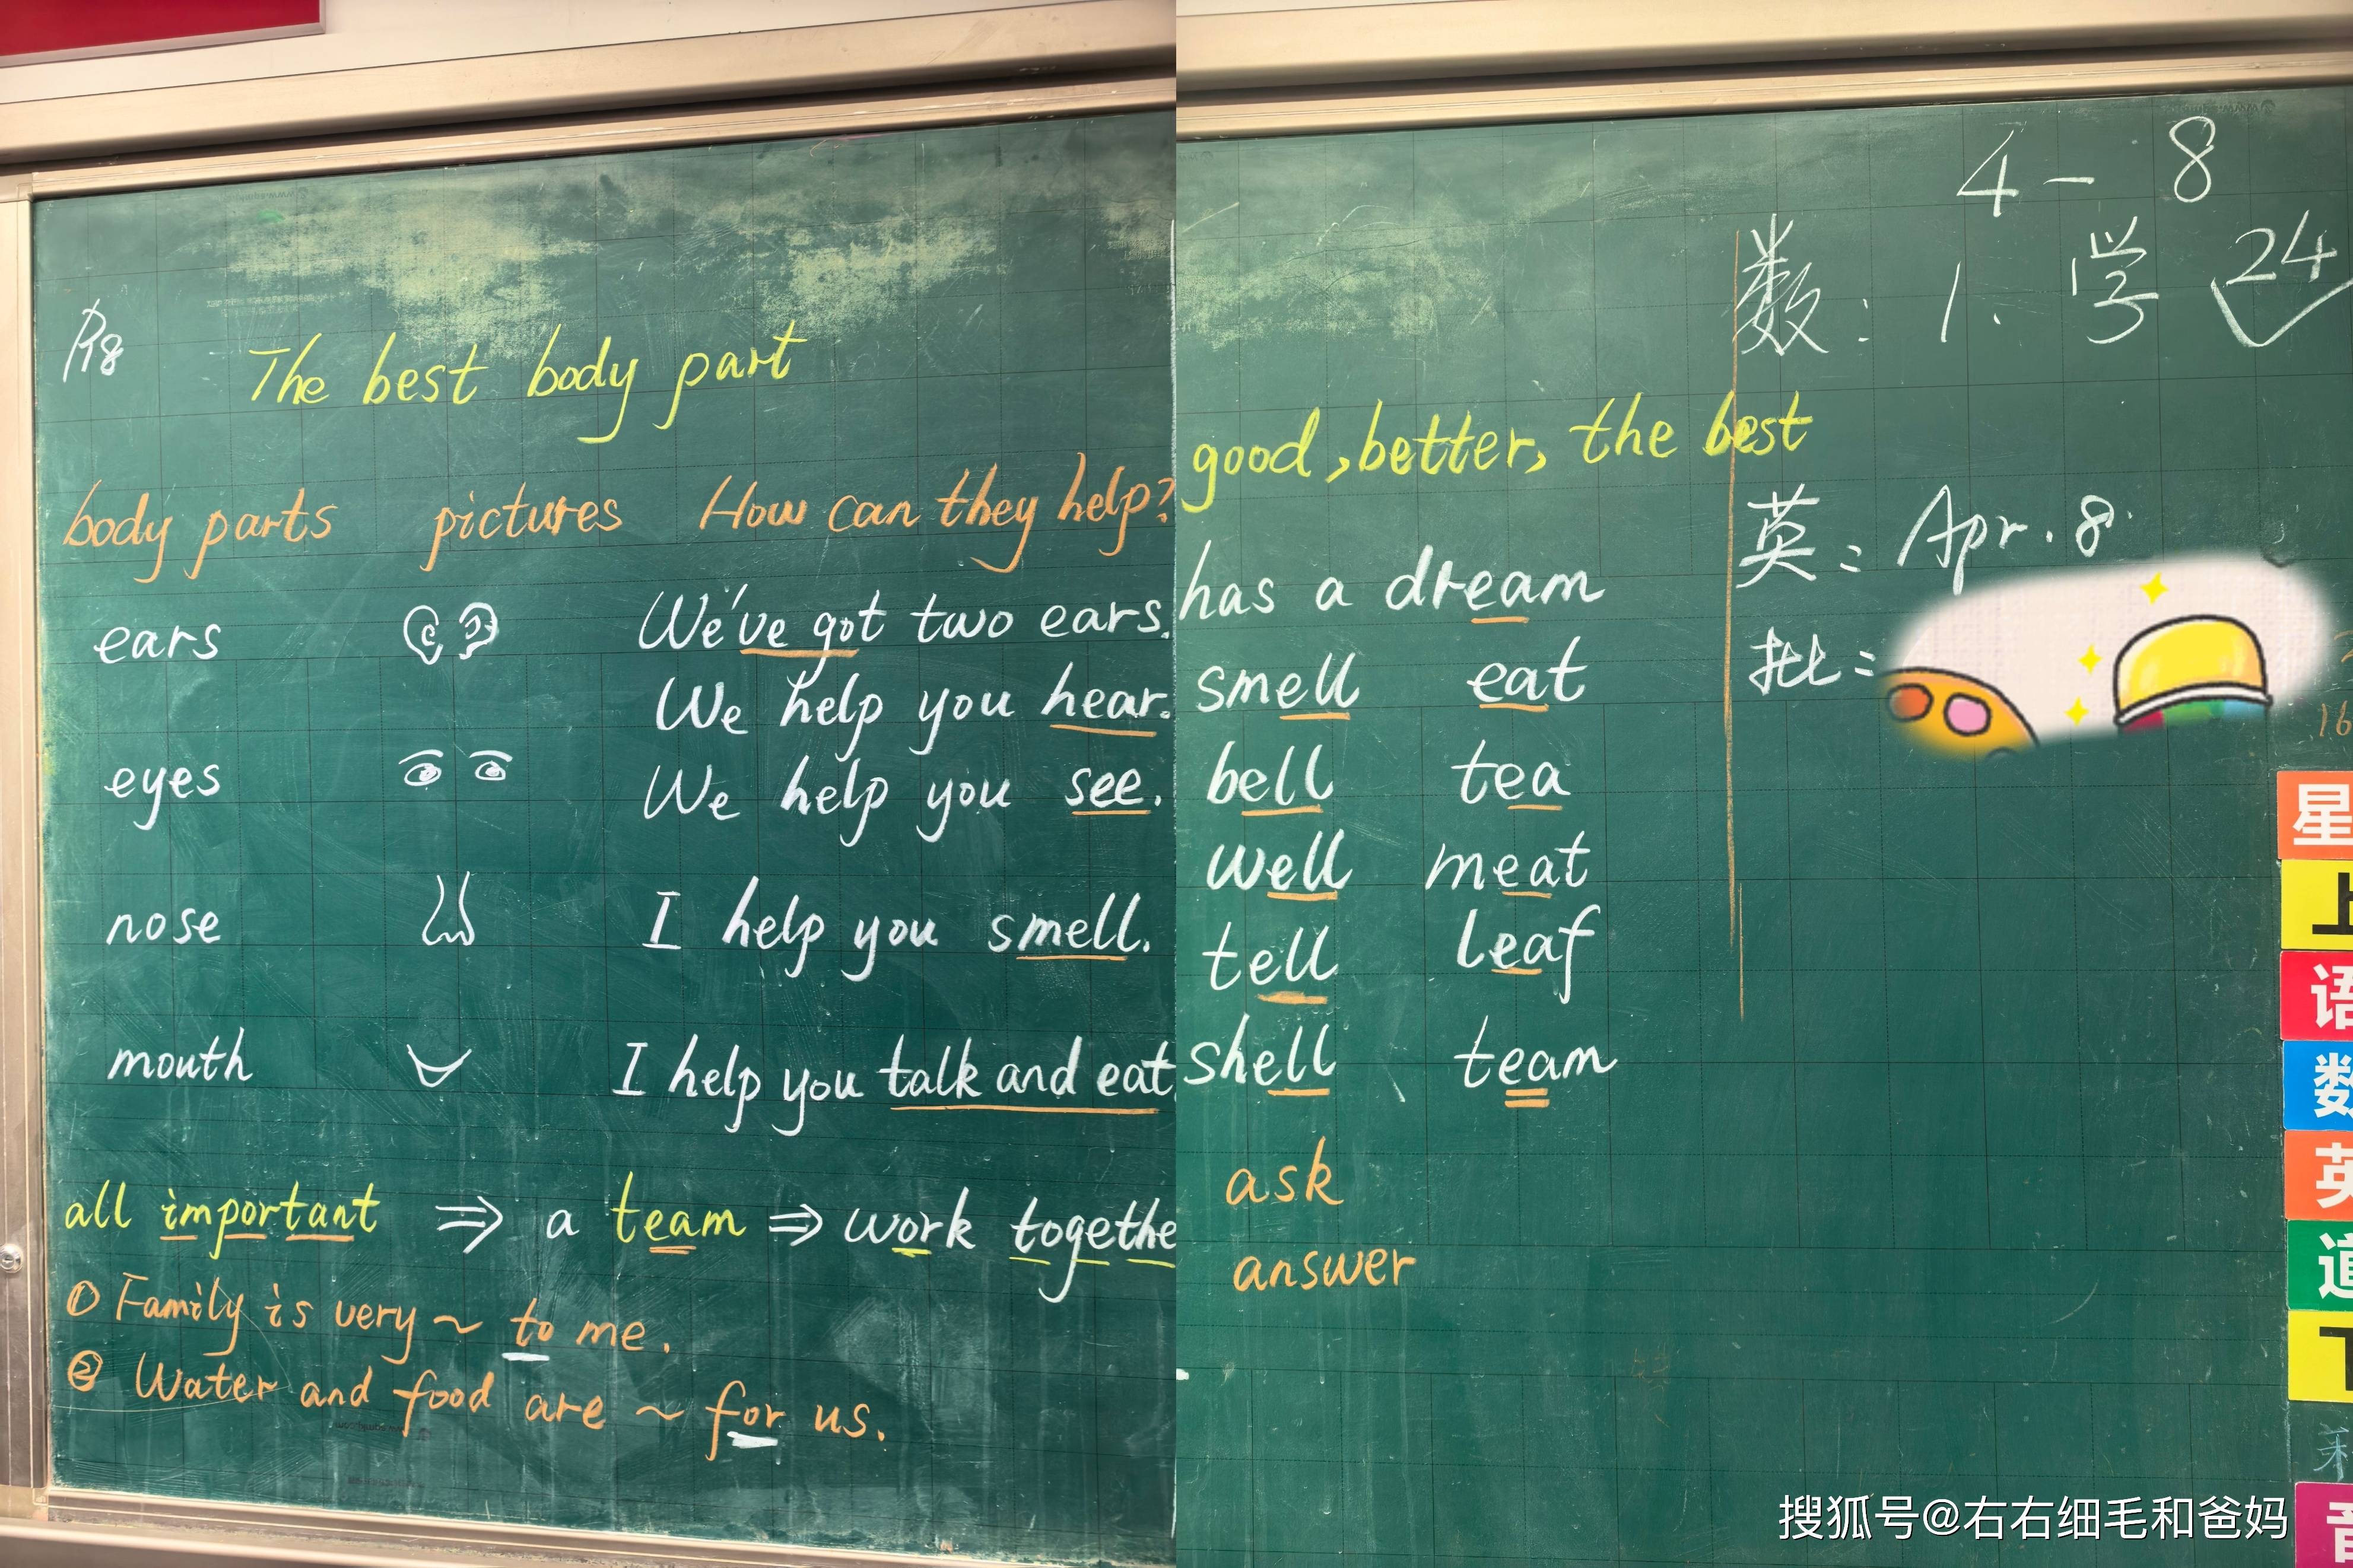 P18
The best body part
body parts pictures How can they help?
ears We've got two ears.
We help you hear.
eyes We help you see.
nose I help you smell.
mouth I help you talk and eat.
all important ⇒ a team ⇒ work togethe
① Family is very ~ to me.
② Water and food are ~ for us.
4-8
数: 1. 学 24
good, better, the best
英: Apr. 8
has a dream
批:
smell eat
bell tea
well meat
tell leaf
shell team
ask
answer
16
星
上
语
数
英
道
音
搜狐号@右右细毛和爸妈